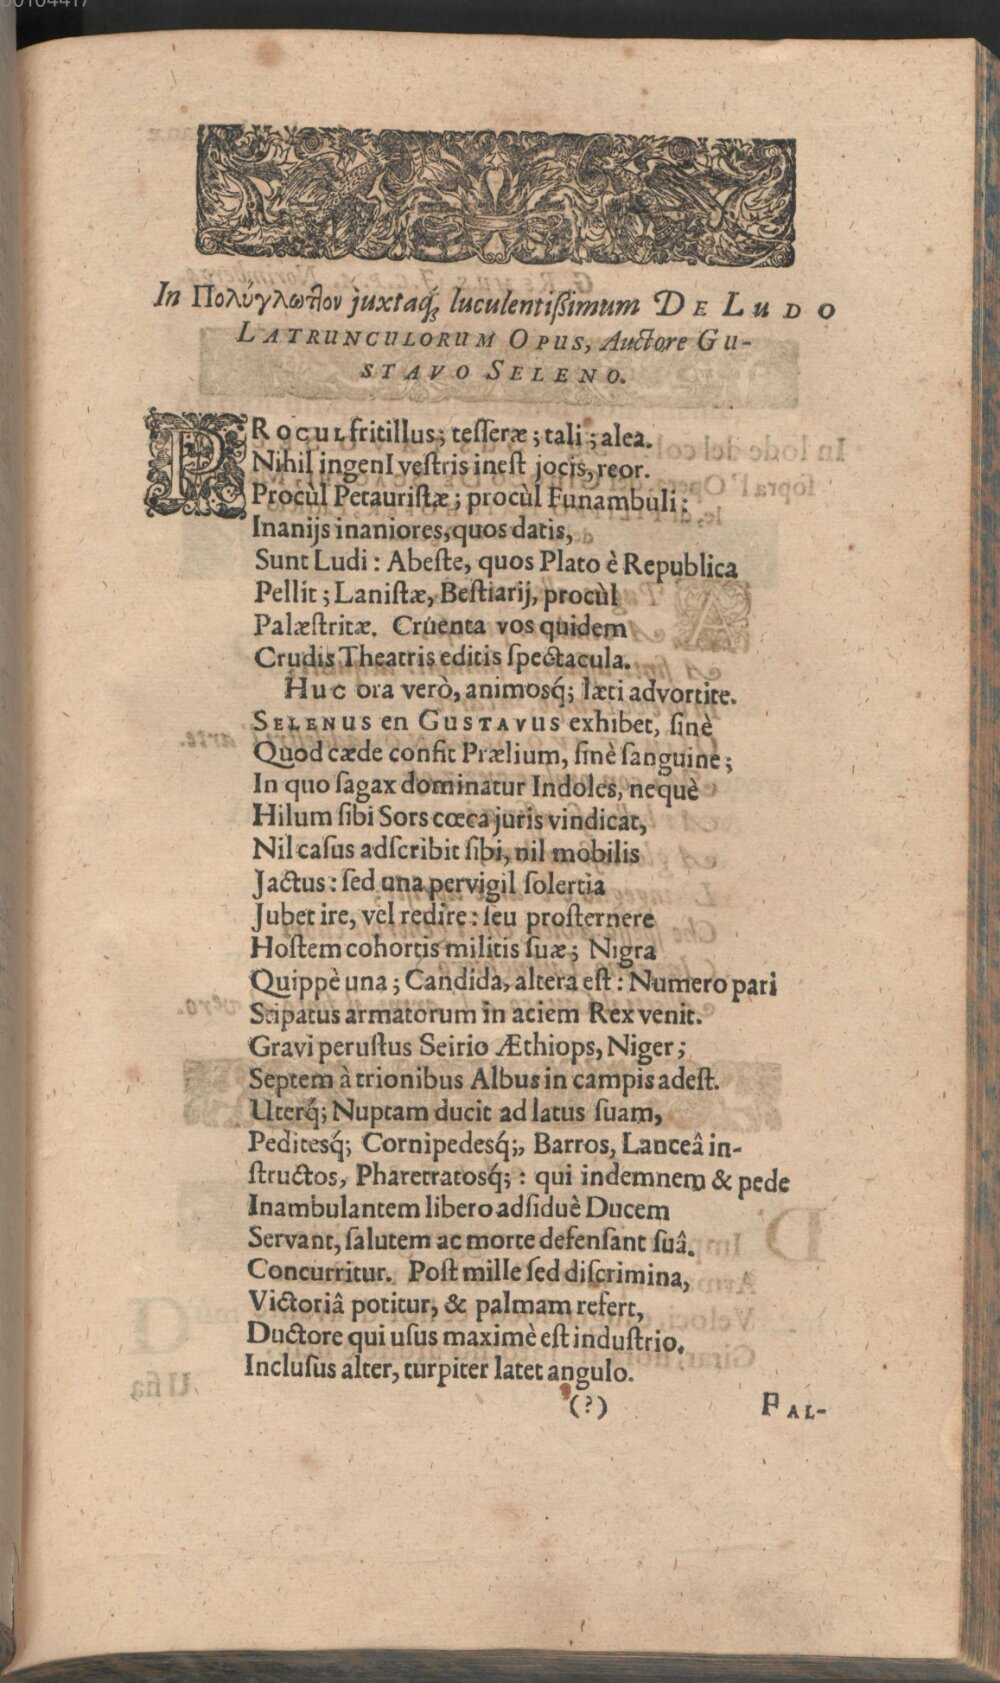 In Πολύγλωττον juxtaq́; luculentißimum DE LUDO
LATRUNCULORUM OPUS, Auctore GU-
STAVO SELENO.
PROCUL fritillus; tesseræ; tali; alea.
Nihil ingenI vestris inest jocis, reor.
Procùl Petauristæ; procùl Funambuli:
Inanijs inaniores, quos datis,
Sunt Ludi: Abeste, quos Plato è Republica
Pellit; Lanistæ, Bestiarij, procùl
Palæstritæ. Cruenta vos quidem
Crudis Theatris editis spectacula.
HUC ora verò, animosq́; læti advortite.
SELENUS en GUSTAVUS exhibet, sinè
Quod cæde confit Prælium, sinè sanguine;
In quo sagax dominatur Indoles, nequè
Hilum sibi Sors cœca juris vindicat,
Nil casus adscribit sibi, nil mobilis
Jactus: sed una pervigil solertia
Jubet ire, vel redire: seu prosternere
Hostem cohortis militis suæ; Nigra
Quippè una; Candida, altera est: Numero pari
Stipatus armatorum in aciem Rex venit.
Gravi perustus Seirio Æthiops, Niger;
Septem à trionibus Albus in campis adest.
Uterq́; Nuptam ducit ad latus suam,
Peditesq́; Cornipedesq́;, Barros, Lanceâ in-
structos, Pharetratosq́; : qui indemnem & pede
Inambulantem libero adsiduè Ducem
Servant, salutem ac morte defensant suâ.
Concurritur. Post mille sed discrimina,
Victoriâ potitur, & palmam refert,
Ductore qui usus maximè est industrio.
Inclusus alter, turpiter latet angulo.
(?) PAL-